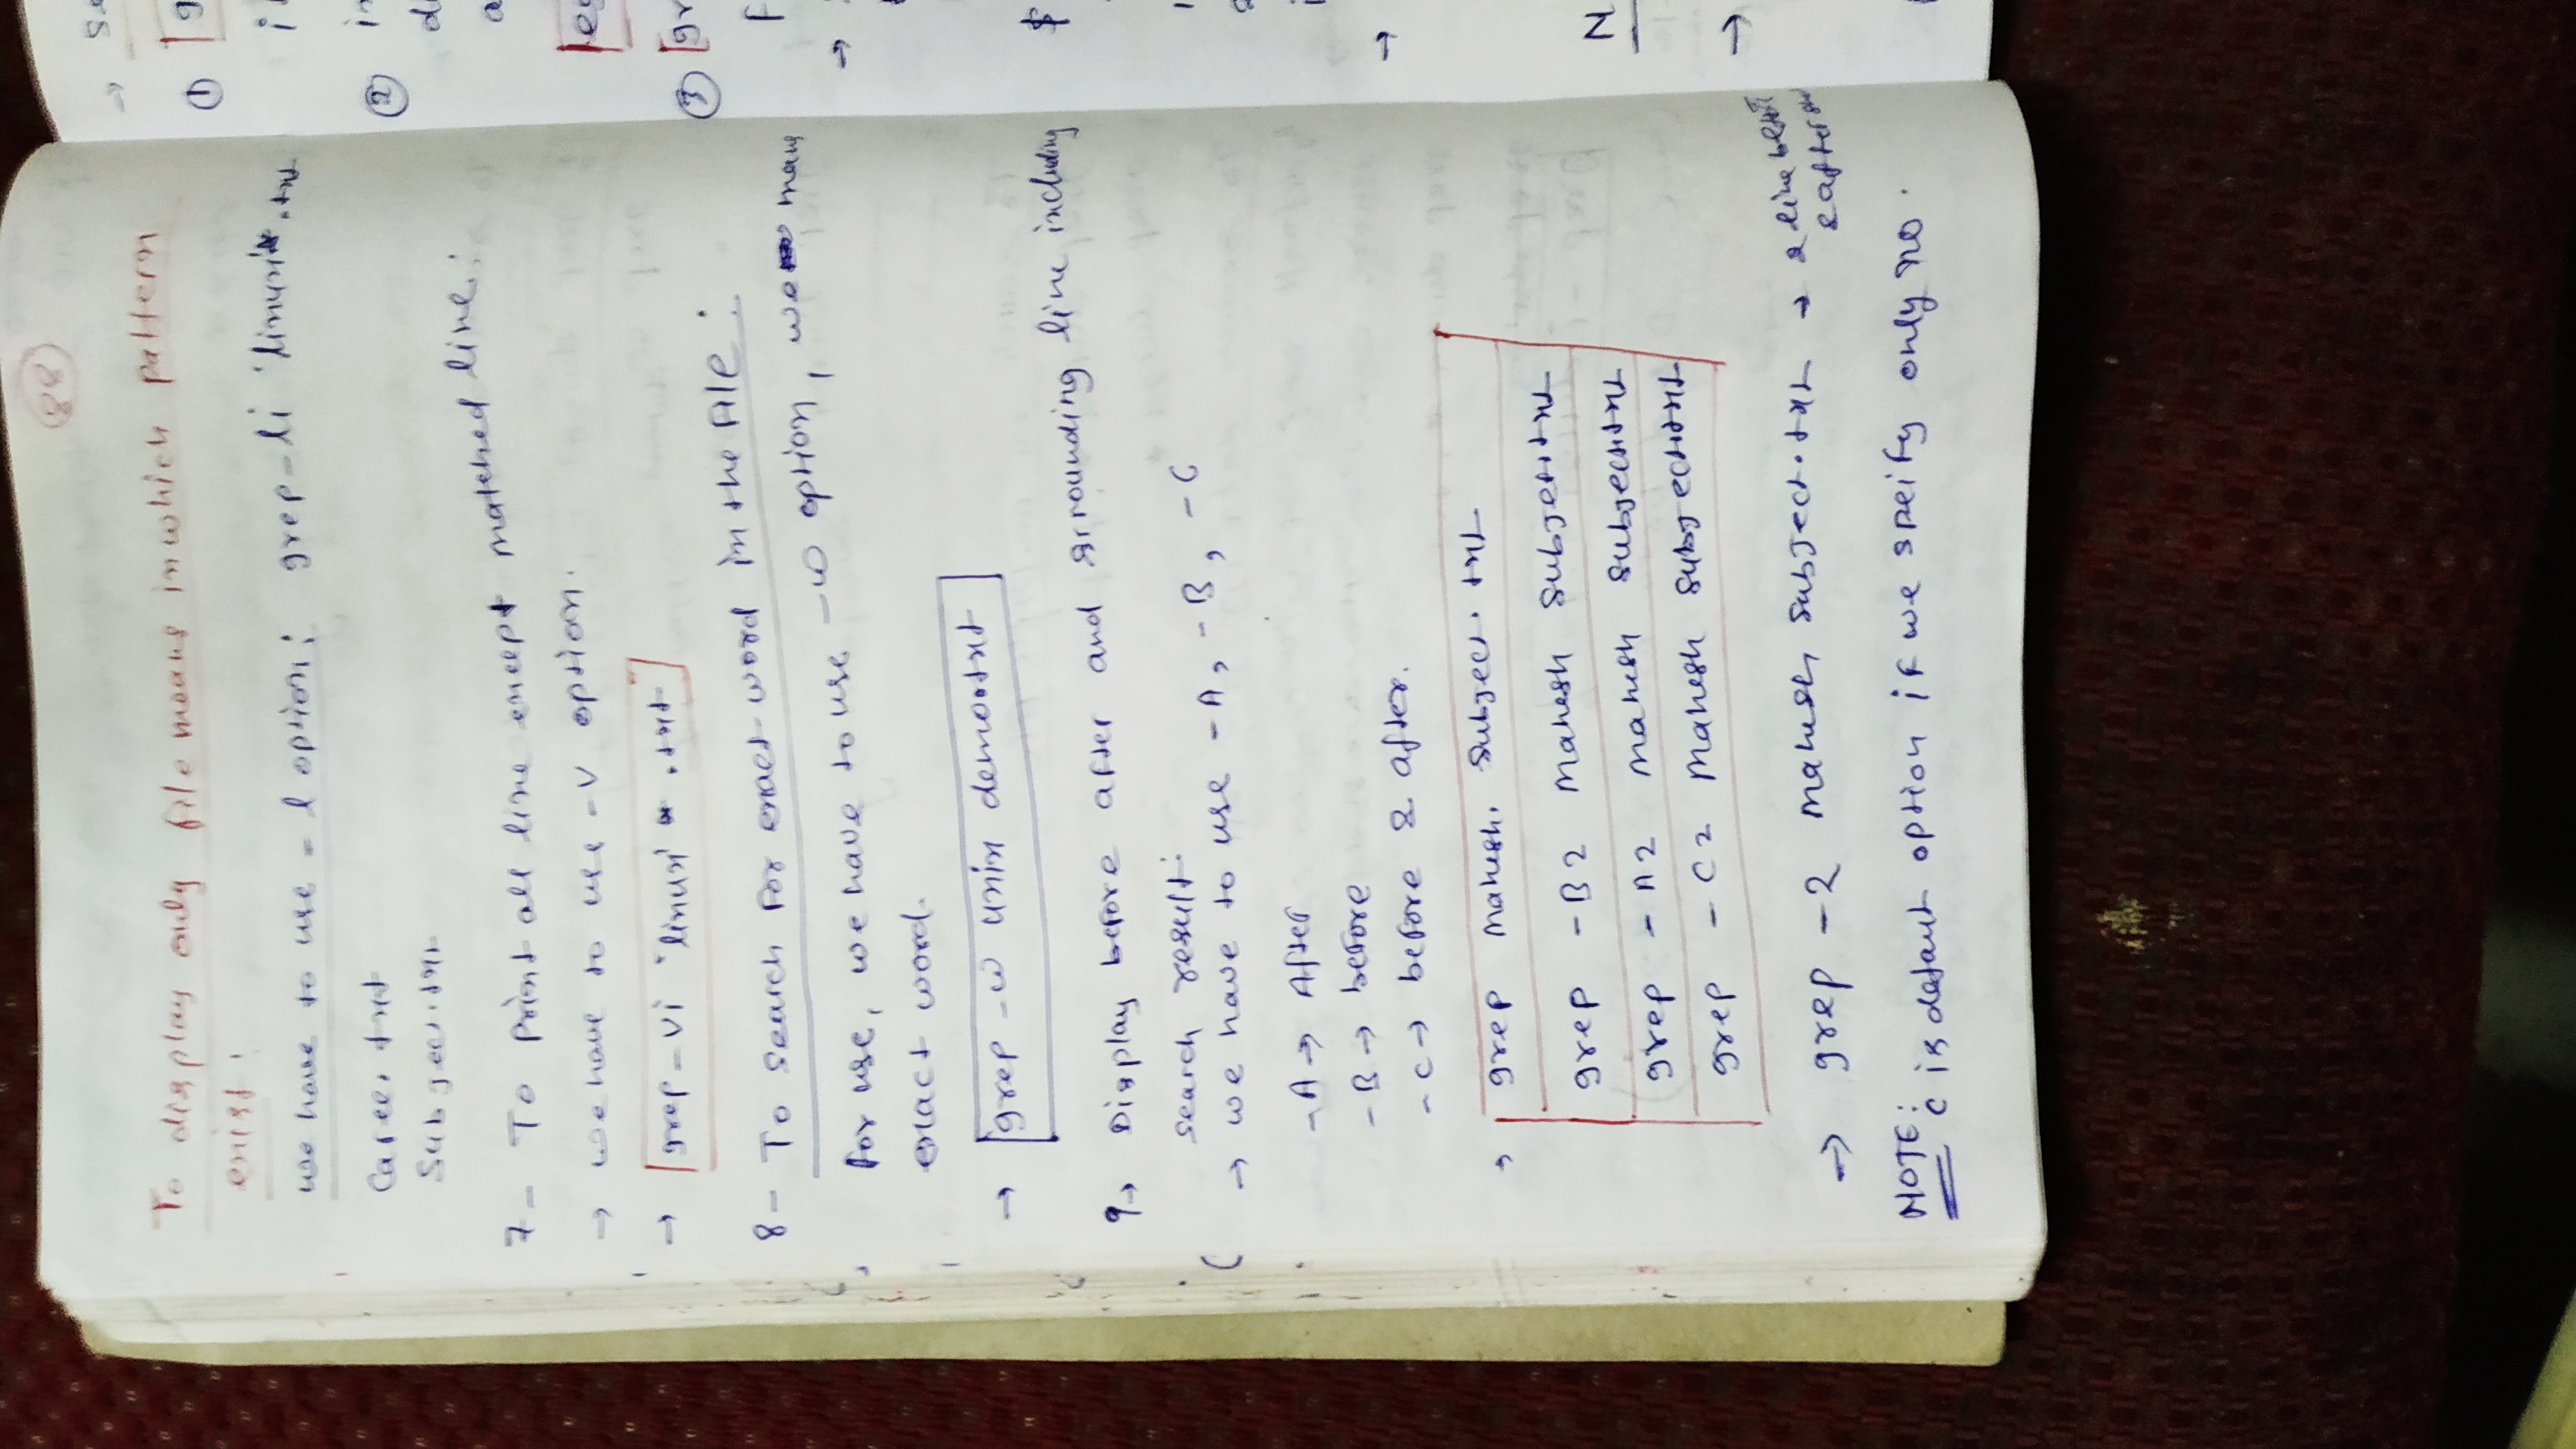 88
To display only file means in which pattern
exist:
we have to use -l option; grep-li 'linux'*.txt
Caree.txt
Subject.txt
7- To Print all line except matched line:
→ we have to use -v option.
→ grep-vi 'linux' *.txt
8- To search for exact word in the file:
for use, we have to use -w option, we
exact word.
→ grep -w unix demo.txt
9→ Display before after and srrounding line including
search result:
→ we have to use -A, -B, -C
-A → After
-B → before
-C → before & after.
→ grep Mahesh. Subject.txt
grep -B2 Mahesh Subject.txt
grep -A2 Mahesh Subject.txt
grep -C2 Mahesh Subject.txt
→ grep -2 Mahesh Subject.txt → 2 line
& after
NOTE:
C is defaut option if we speify only no.
→ Se
① g
②
③ gr
→
$
→
N
→